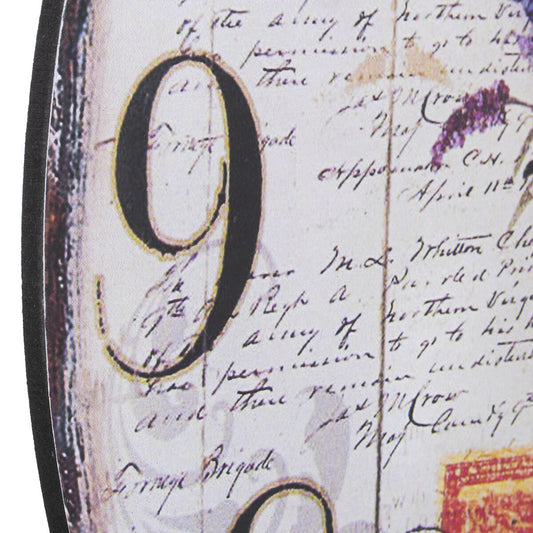 of the army of Northern Virg
has permission to go to his
and there remain undistur
Jas M Crow
Maj
Forneys Brigade
Appomattox C.H.
April 11th
9
M. L. Whitton
9th Ala Regt A Paroled Pri
of the army of Northern Virg
has permission to go to his h
and there remain undistur
Jas M Crow
Maj
Forneys Brigade